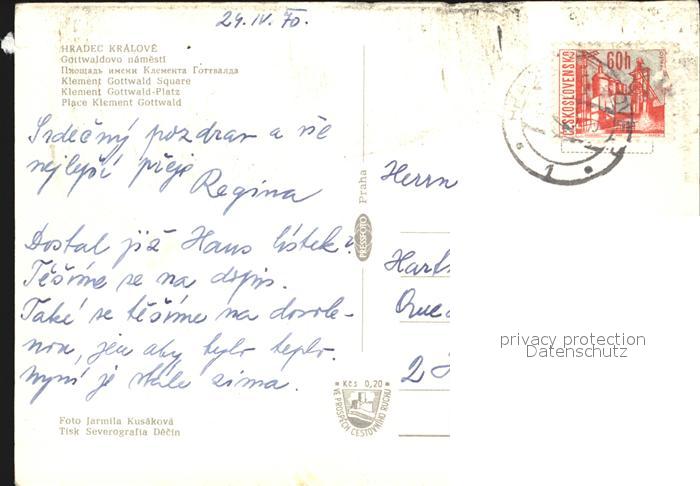 24.IV.70.
HRADEC KRÁLOVÉ
Gottwaldovo náměstí
Площадь имени Клемента Готтвалда
Klement Gottwald Square
Klement Gottwald-Platz
Place Klement Gottwald
Srdečný pozdrav a vše
nejlepší přeje
Regina
Dostal již Hans lístek?
Těšíme se na dopis.
Také se těšíme na dovole-
nou, jen aby bylo teplo.
Nyní je stále zima.
Foto Jarmila Kusáková
Tisk Severografia Děčín
PRESSFOTO Praha
Kčs 0,20
VE PROSPĚCH CESTOVNÍHO RUCHU
ČESKOSLOVENSKO
60h
1
Herrn
Hart
2
privacy protection
Datenschutz